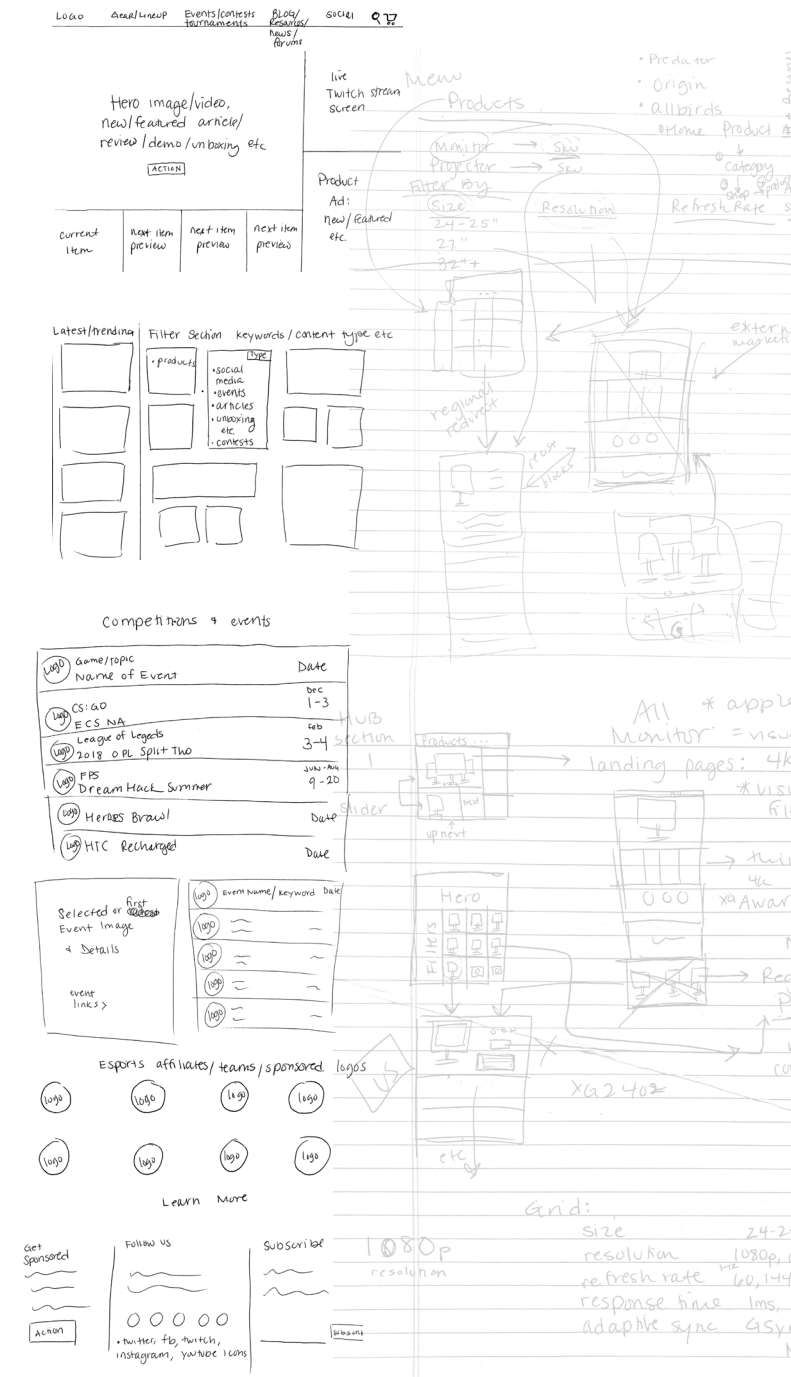 LOGO
Gear/Lineup
Events/contests
tournaments
BLOG/
Resources/
news/
forums
SOCIAL
Hero image/video,
new/featured article/
review/demo/unboxing etc
ACTION
live
Twitch stream
screen
Product
Ad:
new/featured
etc.
current
item
next item
preview
next item
preview
next item
preview
Latest/trending
Filter Section keywords/content type etc
• products
Type
• social
media
• events
• articles
• unboxing
etc.
• contests
Competitions & events
Logo
Game/Topic
Name of Event
Date
Logo
CS:GO
ECS NA
Dec
1-3
Logo
League of Legends
2018 OPL Split Two
Feb
3-4
Logo
FPS
Dream Hack Summer
JUN-AUG
9-20
Logo
Heroes Brawl
Date
Logo
HTC Recharged
Date
Selected or first
Event Image
& Details
event
links >
logo
Event Name/Keyword Date
logo
logo
logo
logo
Esports affiliates/teams/sponsored logos
logo
logo
logo
logo
logo
logo
logo
logo
Learn More
Get
Sponsored
Action
Follow us
• twitter, fb, twitch,
instagram, youtube icons
Subscribe
Subscribe
Menu
Products
Monitor → SKU
Projector → SKU
Filter By
Size
Resolution
Refresh Rate
24-25"
27"
32"+
• Predator
• Origin
• allbirds
Home Product
category
shop
regional
redirect
reuse
blocks
HUB
section
1
slider
Products ...
next
up next
All
Monitor = visu
landing pages: 4K
* apple
* visu
Hero
Filters
4K
x4 Awar
US
XG2402
etc
1080p
resolution
Grid:
size 24-2
resolution 1080p,
refresh rate 60, 144
response time 1ms,
adaptive sync GSyn